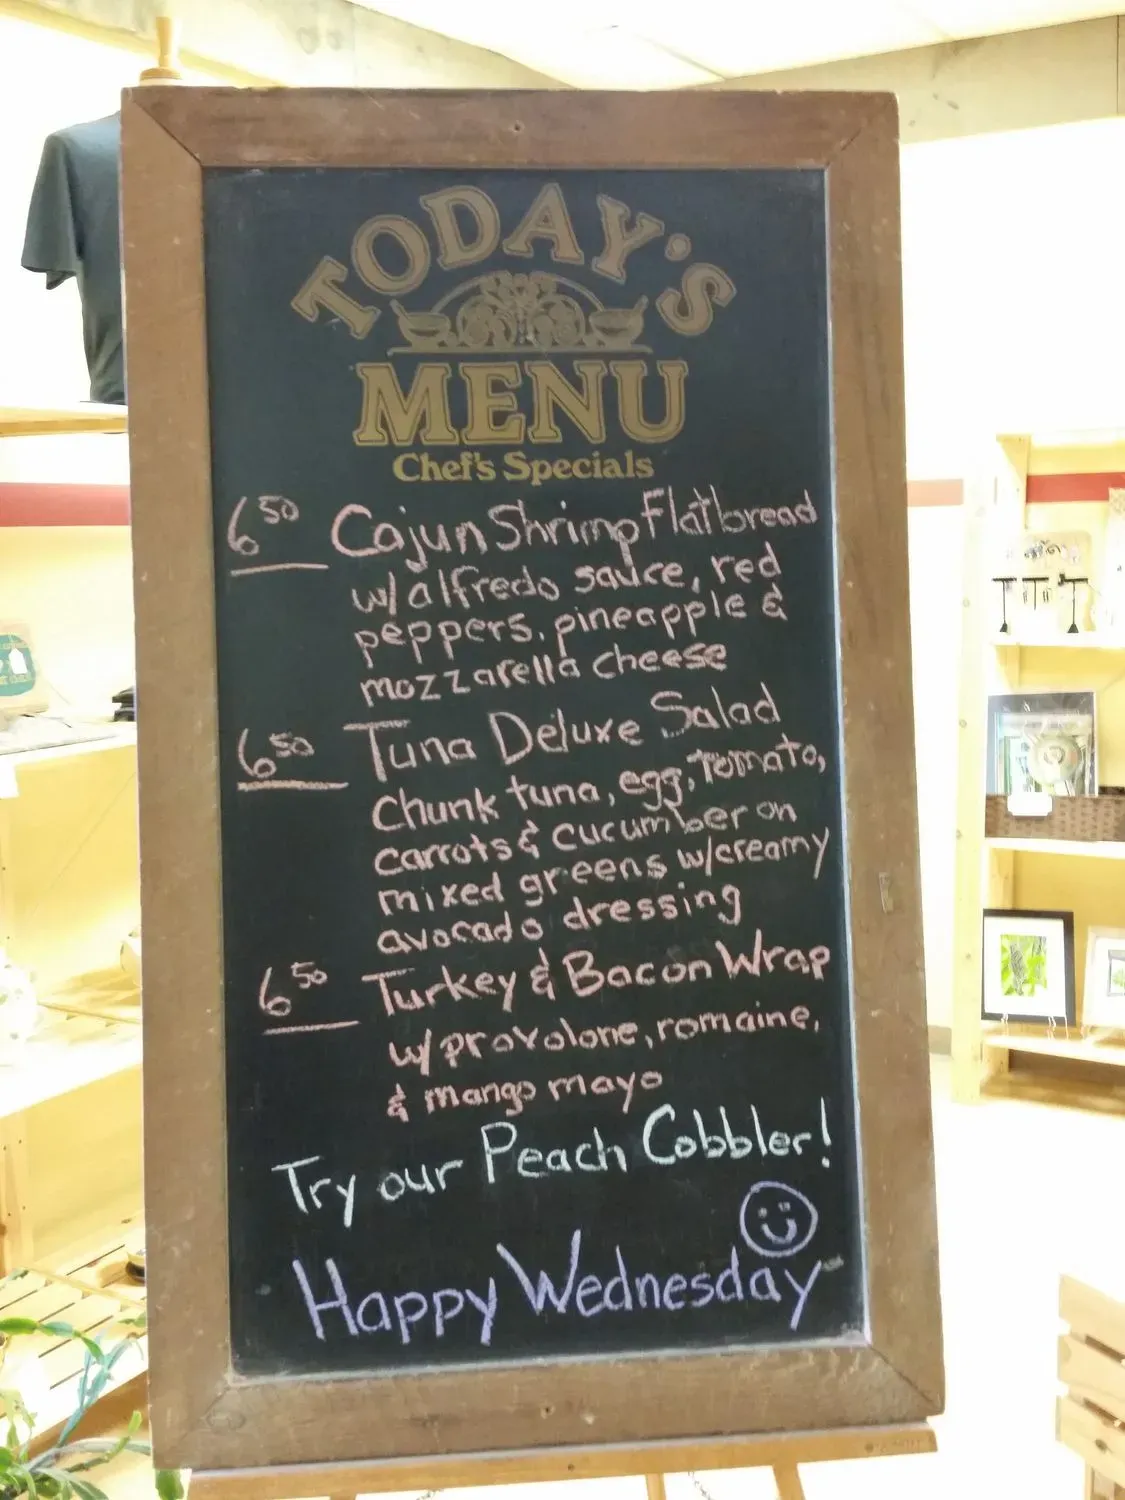 TODAY'S
MENU
Chef's Specials
6.50 Cajun Shrimp Flatbread
w/ alfredo sauce, red
peppers, pineapple &
mozzarella cheese
6.50 Tuna Deluxe Salad
Chunk tuna, egg, tomato,
carrots & cucumber on
mixed greens w/creamy
avocado dressing
6.50 Turkey & Bacon Wrap
w/ provolone, romaine,
& mango mayo
Try our Peach Cobbler!
Happy Wednesday